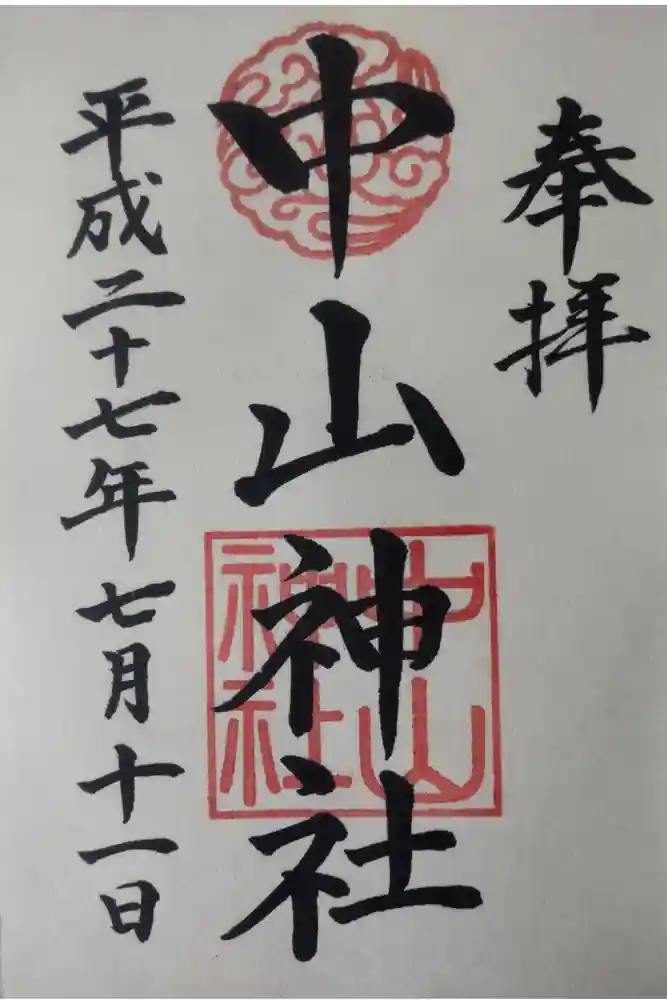 奉拝
中山神社
中山
神社
平成二十七年七月十一日